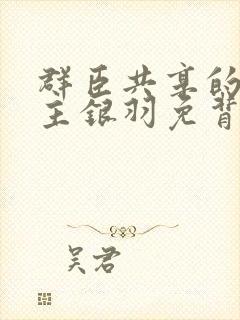 群臣共享的
主银羽免背
吴君